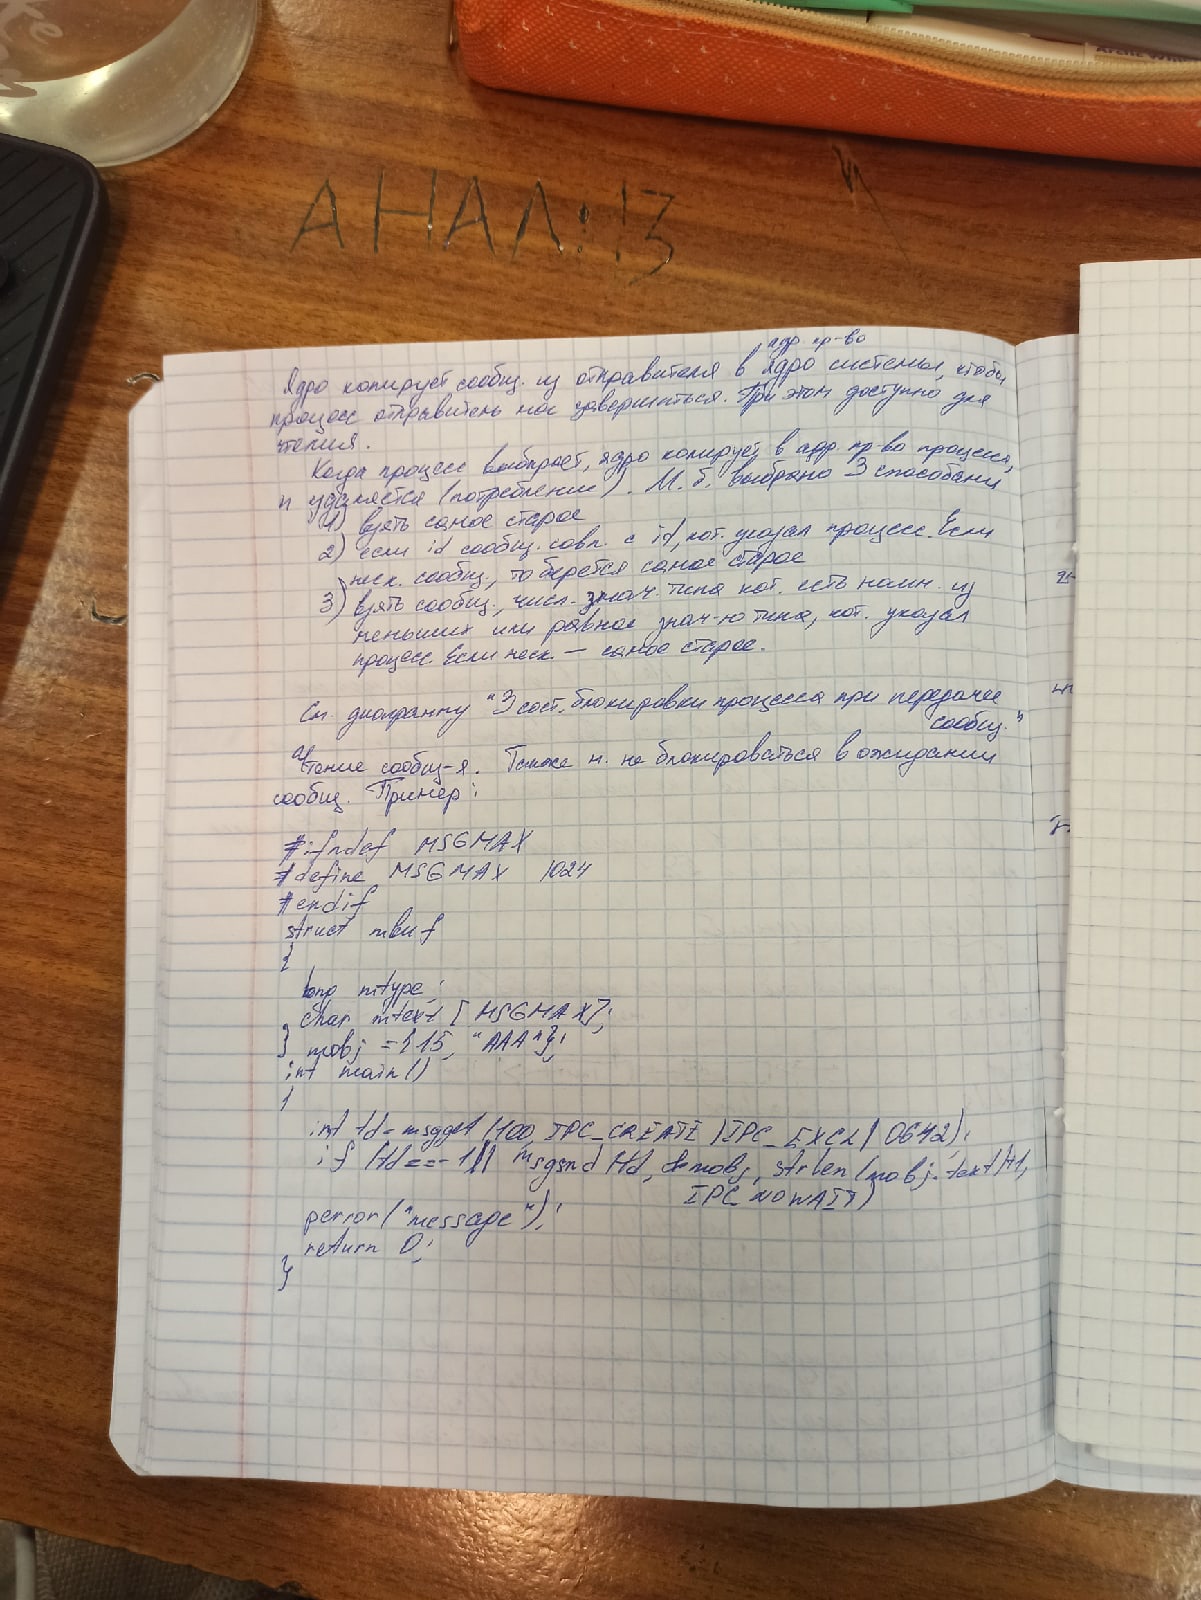 АНАЛ:13
адр. пр-во
Ядро копирует сообщ. из отправителя в ядро системы, чтобы
процесс отправитель мог завершиться. При этом доступно для
чтения.
Когда процесс выбирает, ядро копирует в адр. пр-во процесса,
и удаляется (потребление). М. б. выбрано 3 способами
1) взять самое старое
2) если id сообщ. совп. с id, кот. указал процесс. Если
неск. сообщ., то берется самое старое
3) взять сообщ., числ. знач. типа кот. есть наим. из
меньших или равное знач-ю типа, кот. указал
процесс. Если неск. — самое старое.
См. диаграмму "3 сост. блокировки процесса при передаче
сообщ."
Чтение сообщ-я. Также м. не блокироваться в ожидании
сообщ. Пример:
#ifndef MSGMAX
#define MSGMAX 1024
#endif
struct mbuf
{
long mtype;
char mtext [MSGMAX];
} mobj = {15, "AAA"};
int main()
{
int fd = msgget (100, IPC_CREATE | IPC_EXCL | 0642);
if (fd == -1 || msgsnd (fd, &mobj, strlen (mobj.text)+1,
IPC_NOWAIT)
perror("message");
return 0;
}